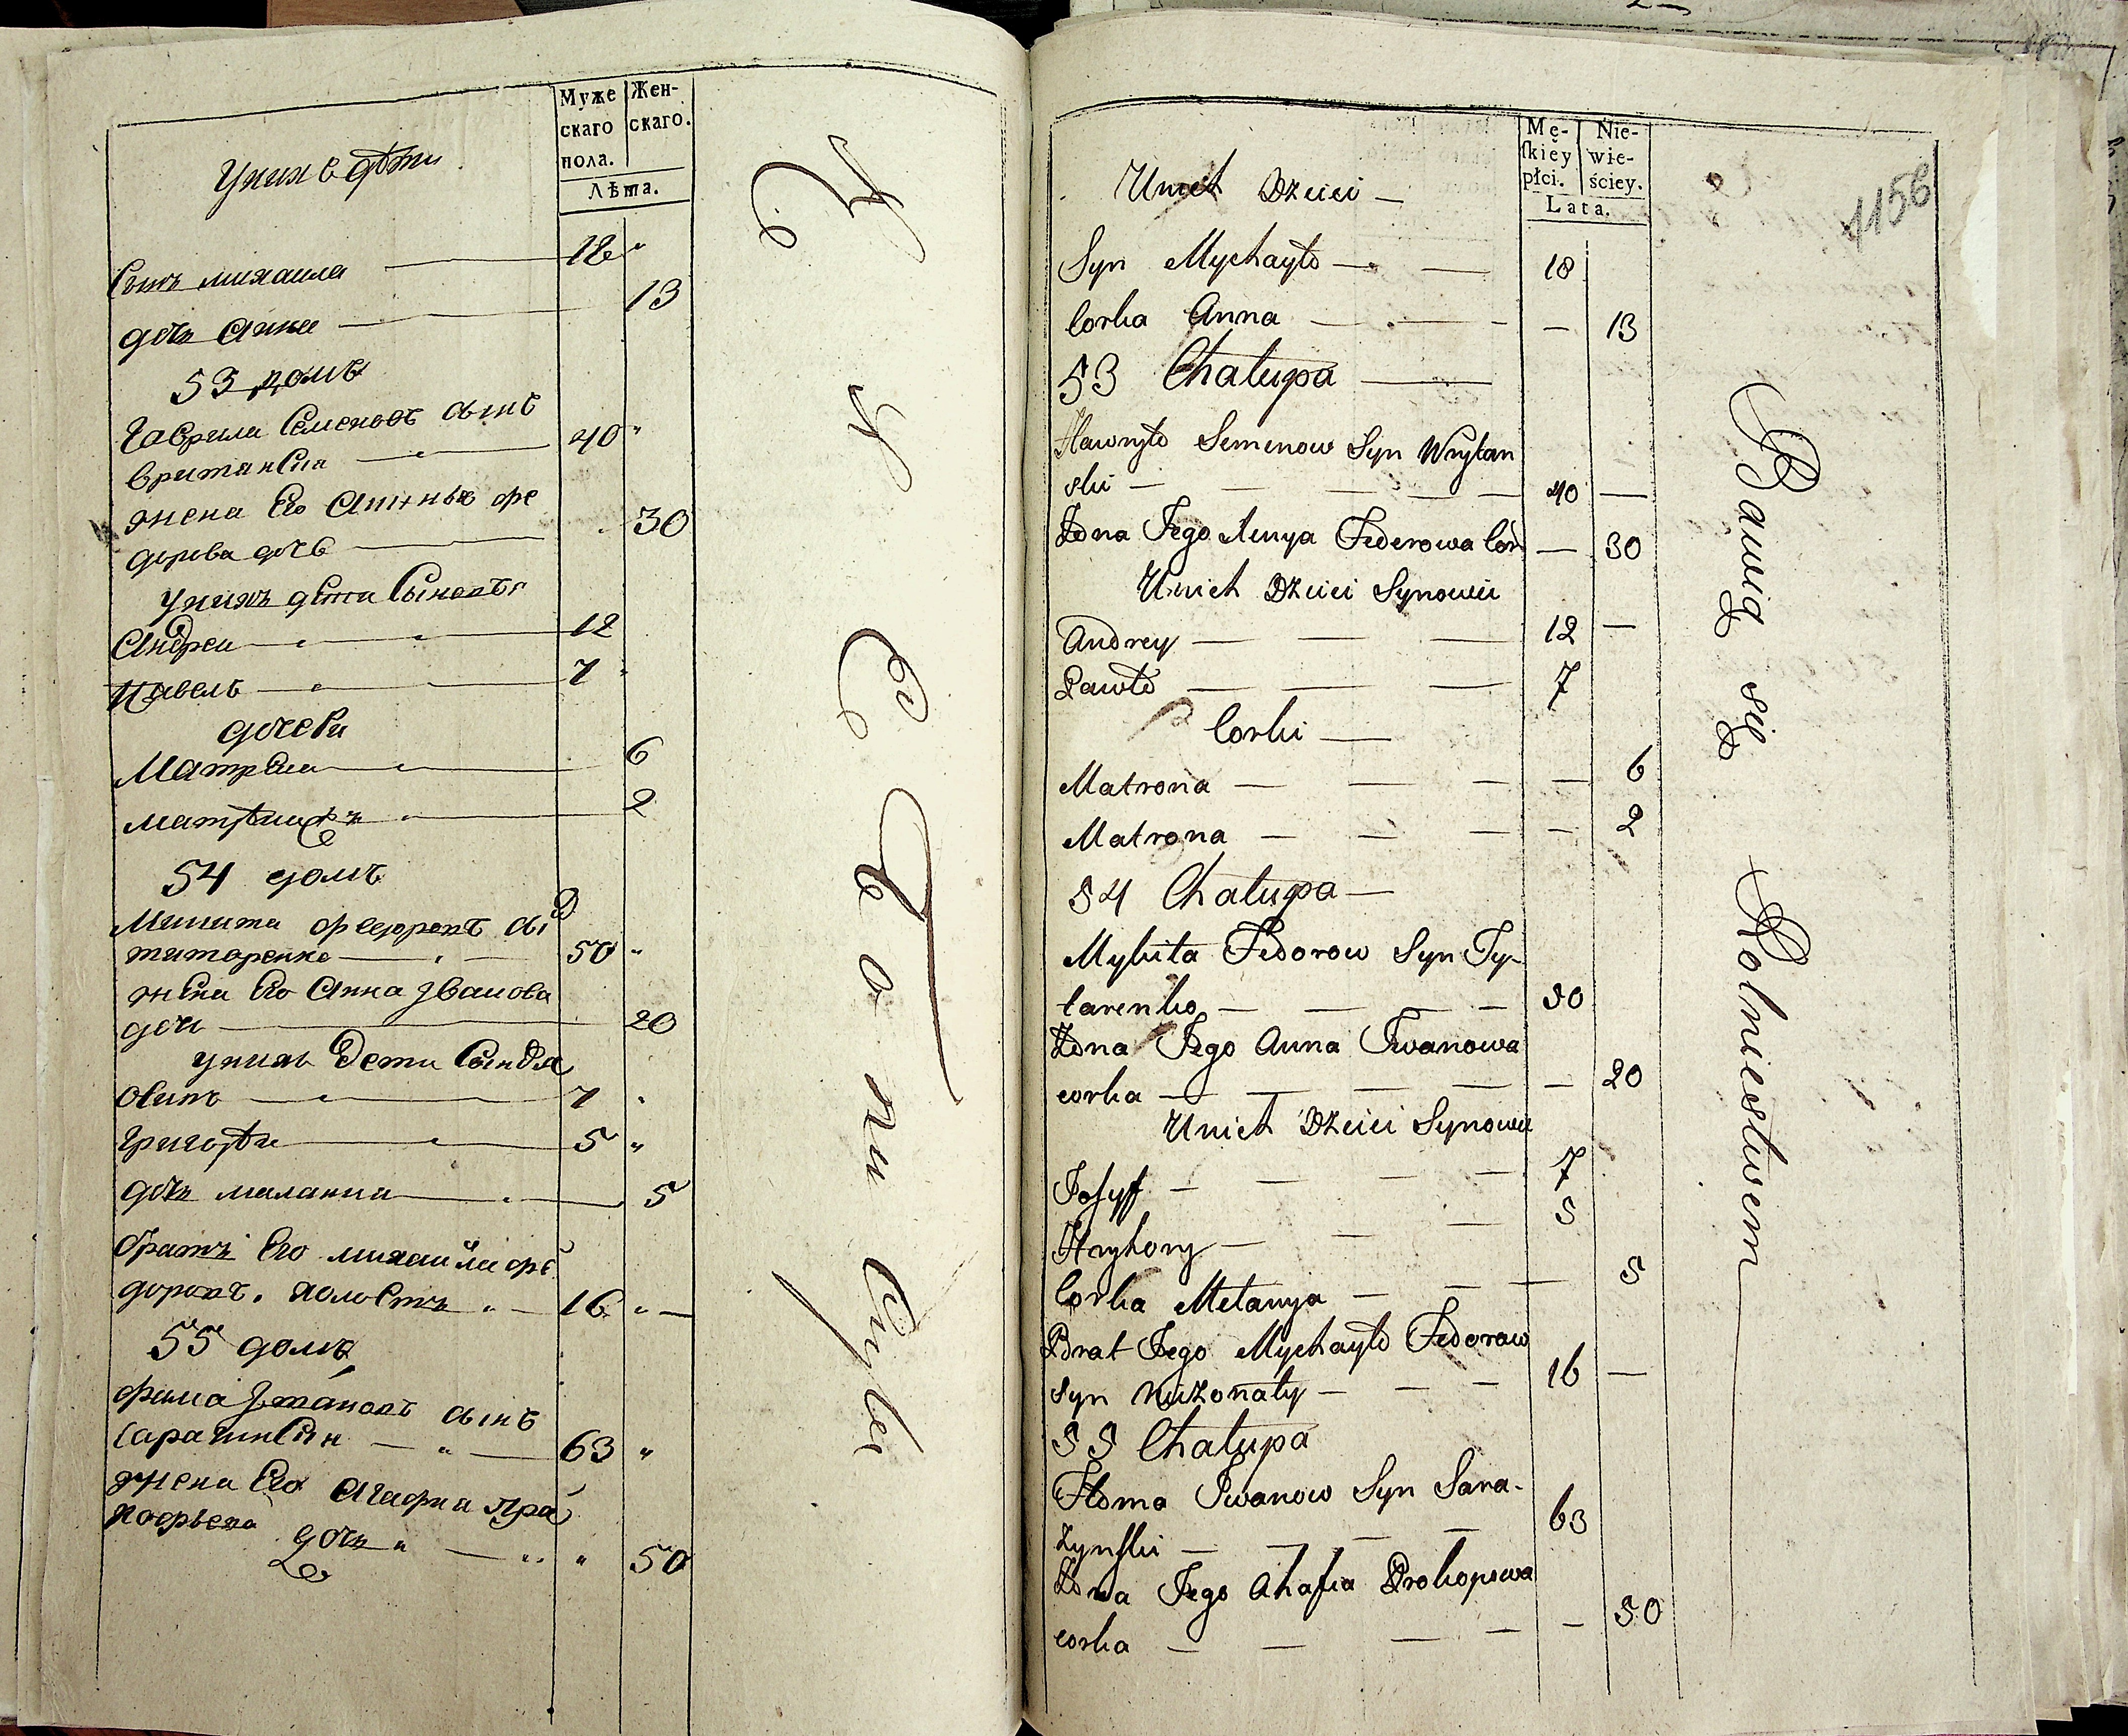 Муже
скаго
пола.
Жен-
скаго.
Лѣта.
Унихъ дѣти
Сынъ михаила 18
дочь Анна 13
53 домъ
Гаврила Семеновъ сынъ
вританскиа 40
жена Его Анна фе
дорова дочь 30
унихъ дети Сыновья
Андреи 12
Павелъ 7
дочеки
Матрена 6
матрена 2
54 домъ
Микита федоровъ сы
титаренко 50
жена Его Анна Ивanова
дочь 20
унихъ Дети Сыновя
Осипъ 7
Григорѣи 5
дочь маланиа 5
братъ Его михаила фе
доровъ, холостъ 16
55 домъ
фома Ивановъ сынъ
Сарашнскии 63
жена Его Агафиа Пра
кофьева
дочь 50
Mę-
ſkiey
płci.
Nie-
wie-
ściey.
Lata.
1156
Unich Dzieci
Syn Mychayło 18
Corka Anna 13
53 Chałupa
Hawryło Semenow Syn Wrytan
ski 40
Żona Jego Anna Federowa Cór 30
Unich Dzieci Synowie
Andrey 12
Pawło 7
Corki
Matrona 6
Matrona 2
54 Chałupa
Mykita Fedorow Syn Ty-
tarenko 50
Żona Jego Anna Iwanowa
corka 20
Unich Dzieci Synowie
Josyff 7
Hryhory 5
Corka Melanya 5
Brat Jego Mychayło Fedorow
syn nieżonaty 16
55 Chałupa
Homa Iwanow Syn Sara-
żynſki 63
Żona Jego Ahafia Prokopowa
corka 50
Bawią się Rolniestwem